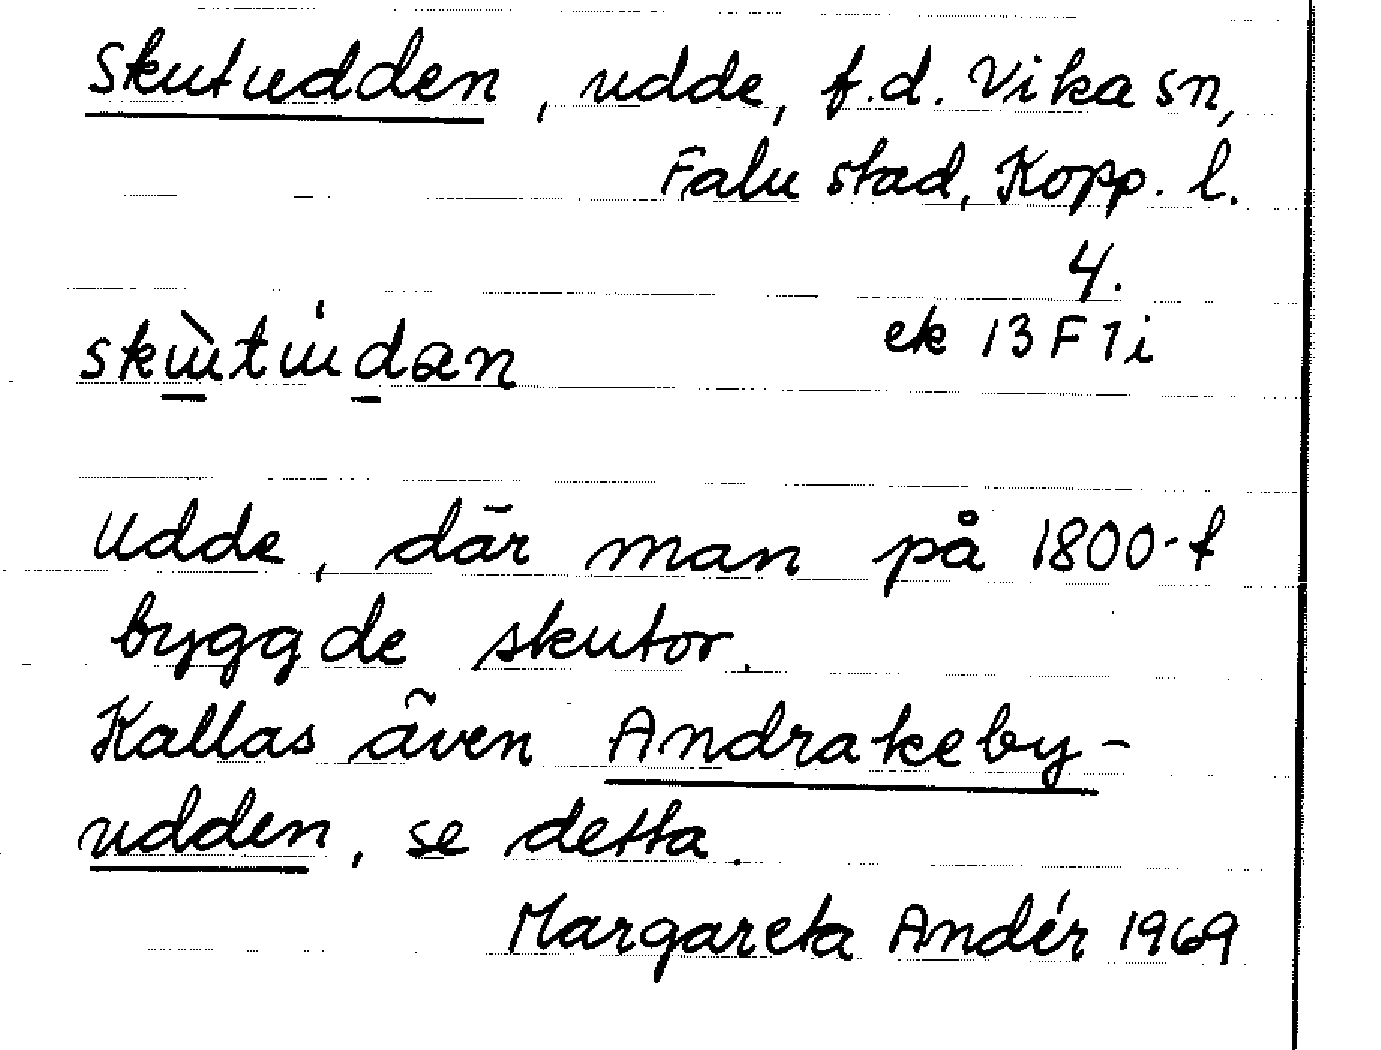 Skutudden, udde, f.d. Vika sn,
Falu stad, Kopp. l.
4.
ek 13 F 7i
skɯ̀tɯ́dan
Udde, där man på 1800-t
byggde skutor.
Kallas även Andrakeby-
udden, se detta.
Margareta Andér 1969